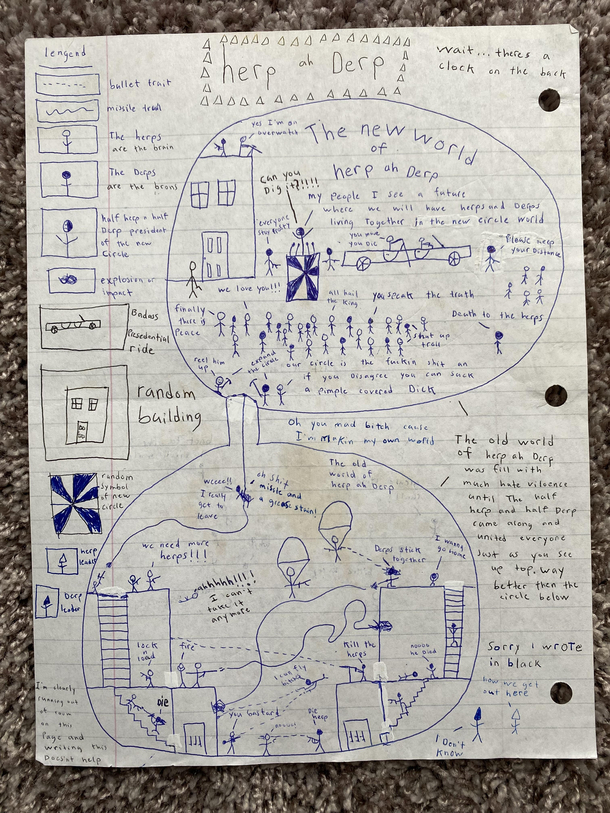 lengend
bullet trait
missile trail
The herps
are the brain
The Derps
are the brons
half herp n half
Derp president
of the new
Circle
explosion or
impact
Badass
Presedential
ride
random
building
random
symbol
of new
circle
herp
leader
Derp
leader
I'm clearly
running out
of room
on this
Page and
writing this
Doesn't help
herp ah Derp
wait...there's a
clock on the back
yes I'm on
overwatch
The new world
of
herp ah Derp
Can you
Dig it?!!!!
my people I see a future
where we will have herps and Derps
living together in the new circle world
everyone
stay back!
you move
you Die
Please keep
your Distance
we love you!!!
all hail
the King
you speak the truth
finally
there is
Peace
Death to the herps
shut up
troll
reel him
up
expand
the circle
our circle is the fuckin shit an
if you Disagree you can suck
a pimple covered Dick
Oh you mad bitch cause
I'm makin my own world
The old world
of herp ah Derp
was fill with
much hate viloence
until The half
herp and half Derp
came along and
united everyone
Just as you see
up top. way
better then the
circle below
The old
world of
herp ah Derp
weeee!!
I really
got to
leave
oh shit
missle and
a grease stain!
we need more
herps!!!
aahhhhh!!!!
I can't
take it
anymore
Derps stick
together
I wanna
go home
lock
n
load
fire
kill the
herps
noooo
he Died
I can fly
DIE
you bastard
Die
herp
Sorry I wrote
in black
how we get
out here
I Don't
know